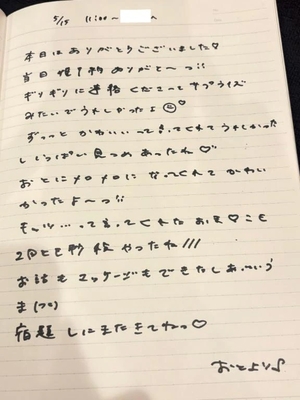 5/15 11:00〜 へ
本日はありがとうございました♡
当日予約ありがと〜!!
ギリギリに連絡くださってサプライズ
みたいでうれしかったよ☺
ずっっとかわいいって言ってくれてうれしかった
しいっぱい見つめあったね♡
おとにメロメロになっててくれてかわい
かったよ〜!!
もっッ…って言ってくれた
2回とも秒
やったね///
お話もマッサージもできたしあっという
ま(つo)
宿題しにまたきてねっ♡
おとより♪